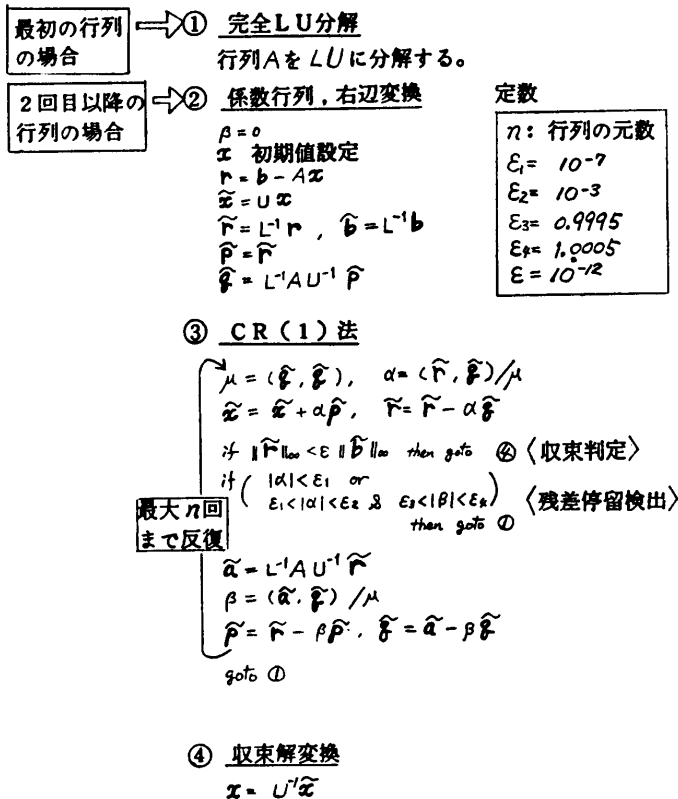 最初の行列の場合 ⇒ ① 完全LU分解
行列AをLUに分解する。
2回目以降の行列の場合 ⇒ ② 係数行列，右辺変換
β = 0
x 初期値設定
r = b - Ax
x̃ = Ux
r̃ = L⁻¹r , b̃ = L⁻¹b
p̃ = r̃
q̃ = L⁻¹AU⁻¹ p̃
定数
n: 行列の元数
ε₁= 10⁻⁷
ε₂= 10⁻³
ε₃= 0.9995
ε₄= 1.0005
ε = 10⁻¹²
③ CR(1)法
μ = (q̃, q̃), α = (r̃, q̃)/μ
x̃ = x̃ + αp̃, r̃ = r̃ - αq̃
if ‖r̃‖∞ < ε ‖b̃‖∞ then goto ④ 〈収束判定〉
if ( |α|<ε₁ or
ε₁<|α|<ε₂ & ε₃<|β|<ε₄ ) 〈残差停留検出〉
then goto ①
最大n回
まで反復
ã = L⁻¹AU⁻¹ r̃
β = (ã, q̃) /μ
p̃ = r̃ - βp̃, q̃ = ã - βq̃
goto ①
④ 収束解変換
x = U⁻¹x̃